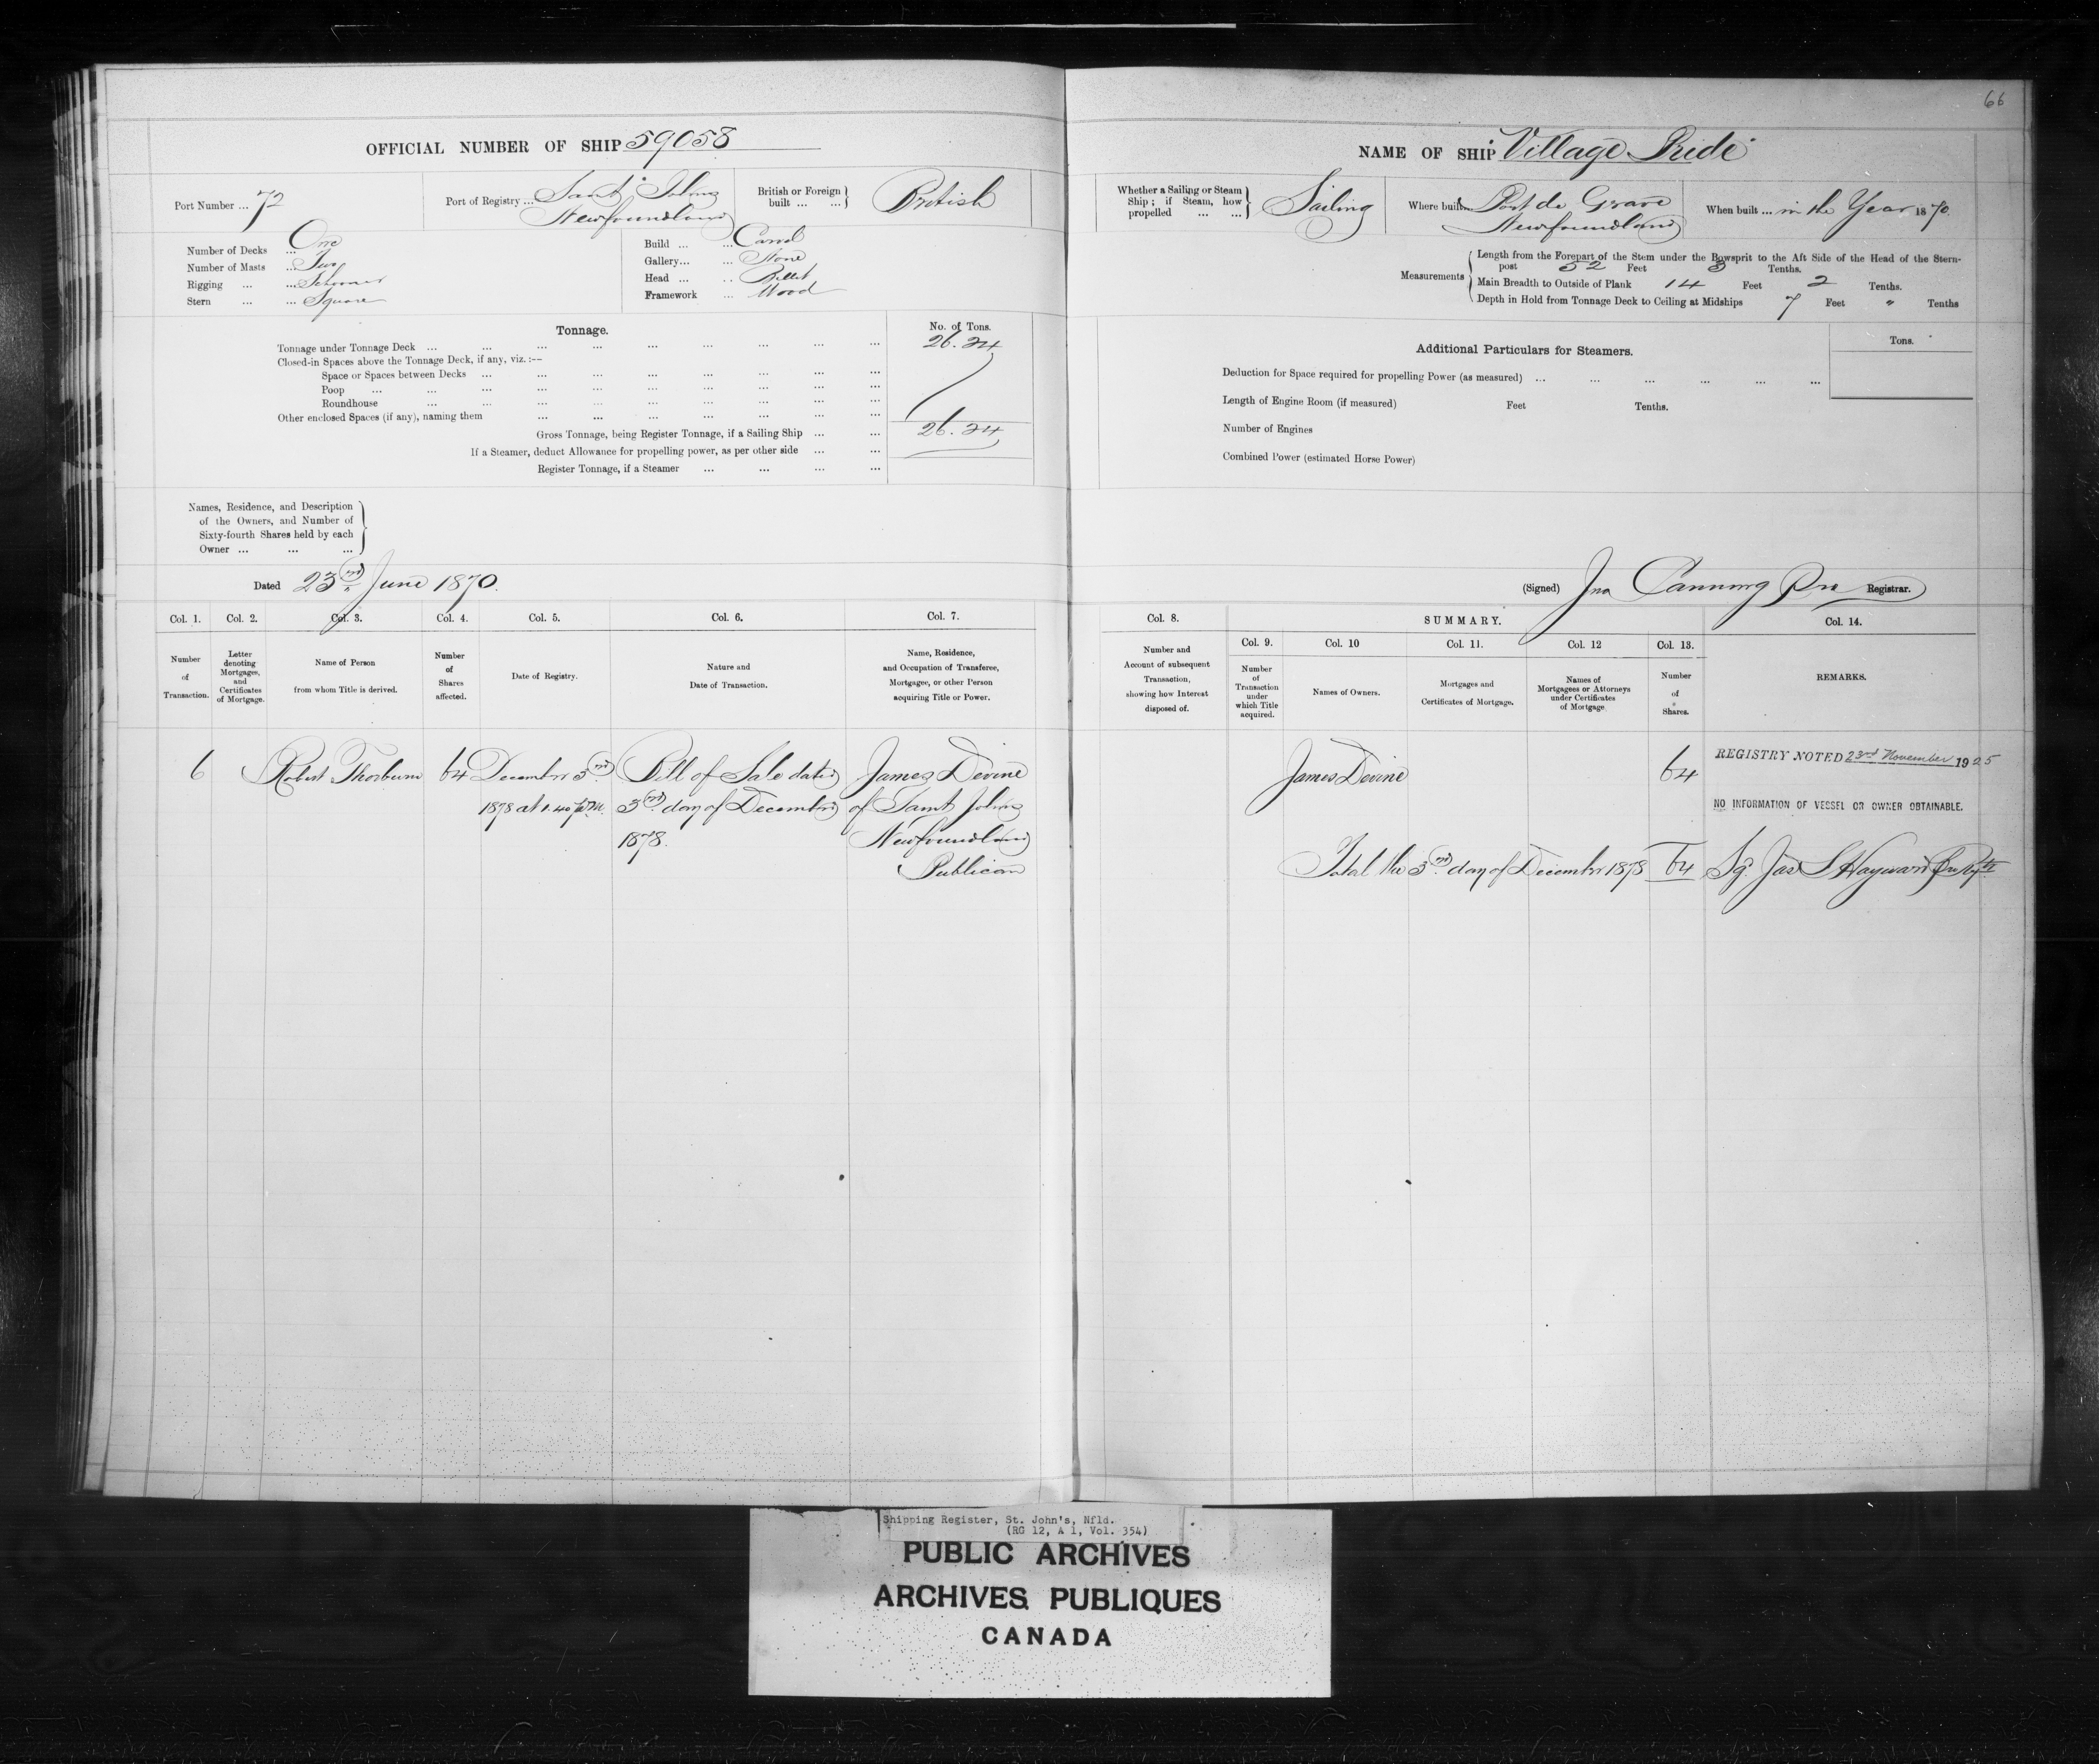 66
OFFICIAL NUMBER OF SHIP 59058
Port Number ... 72
Port of Registry ... Saint John's
Newfoundland
British or Foreign built ... ... British
Number of Decks ... One
Number of Masts ... Two
Rigging ... ... Schooner
Stern ... ... Square
Build ... ... Carvel
Gallery... ... None
Head ... .. Billet
Framework ... Wood
Tonnage.
No. of Tons.
Tonnage under Tonnage Deck ... 26.24
Closed-in Spaces above the Tonnage Deck, if any, viz. :--
Space or Spaces between Decks ...
Poop ...
Roundhouse ...
Other enclosed Spaces (if any), naming them ...
Gross Tonnage, being Register Tonnage, if a Sailing Ship ... ... 26.24
If a Steamer, deduct Allowance for propelling power, as per other side ... ...
Register Tonnage, if a Steamer ... ... ... ...
Names, Residence, and Description
of the Owners, and Number of
Sixty-fourth Shares held by each
Owner ... ... ...
Dated 23rd June 1870.
Col. 1. Col. 2. Col. 3. Col. 4. Col. 5. Col. 6. Col. 7.
Number of Transaction.
Letter denoting Mortgages, and Certificates of Mortgage.
Name of Person from whom Title is derived.
Number of Shares affected.
Date of Registry.
Nature and Date of Transaction.
Name, Residence, and Occupation of Transferee, Mortgagee, or other Person acquiring Title or Power.
6 Robert Thorburn 64 December 3rd Bill of Sale dated James Devine
1878 at 1.40 p.m. 3rd day of December of Saint John's
1878. Newfoundland
Publican
NAME OF SHIP Village Pride
Whether a Sailing or Steam Ship ; if Steam, how propelled ... ... Sailing
Where built... Port de Grave
Newfoundland
When built ... in the Year 1870.
Measurements
Length from the Forepart of the Stem under the Bowsprit to the Aft Side of the Head of the Stern-
post 52 Feet 3 Tenths.
Main Breadth to Outside of Plank 14 Feet 2 Tenths.
Depth in Hold from Tonnage Deck to Ceiling at Midships 7 Feet " Tenths
Additional Particulars for Steamers.
Tons.
Deduction for Space required for propelling Power (as measured) ...
Length of Engine Room (if measured) Feet Tenths.
Number of Engines
Combined Power (estimated Horse Power)
(Signed) Jno Canning Pro Registrar.
Col. 8. SUMMARY. Col. 14.
Col. 9. Col. 10 Col. 11. Col. 12 Col. 13.
Number and Account of subsequent Transaction, showing how Interest disposed of.
Number of Transaction under which Title acquired.
Names of Owners.
Mortgages and Certificates of Mortgage.
Names of Mortgagees or Attorneys under Certificates of Mortgage
Number of Shares.
REMARKS.
James Devine 64 REGISTRY NOTED 23rd November 1925
NO INFORMATION OF VESSEL OR OWNER OBTAINABLE.
Total the 3rd day of December 1878 64 Sg. Jas S Hayward
Shipping Register, St. John's, Nfld.
(RG 12, A 1, Vol. 354)
PUBLIC ARCHIVES
ARCHIVES PUBLIQUES
CANADA